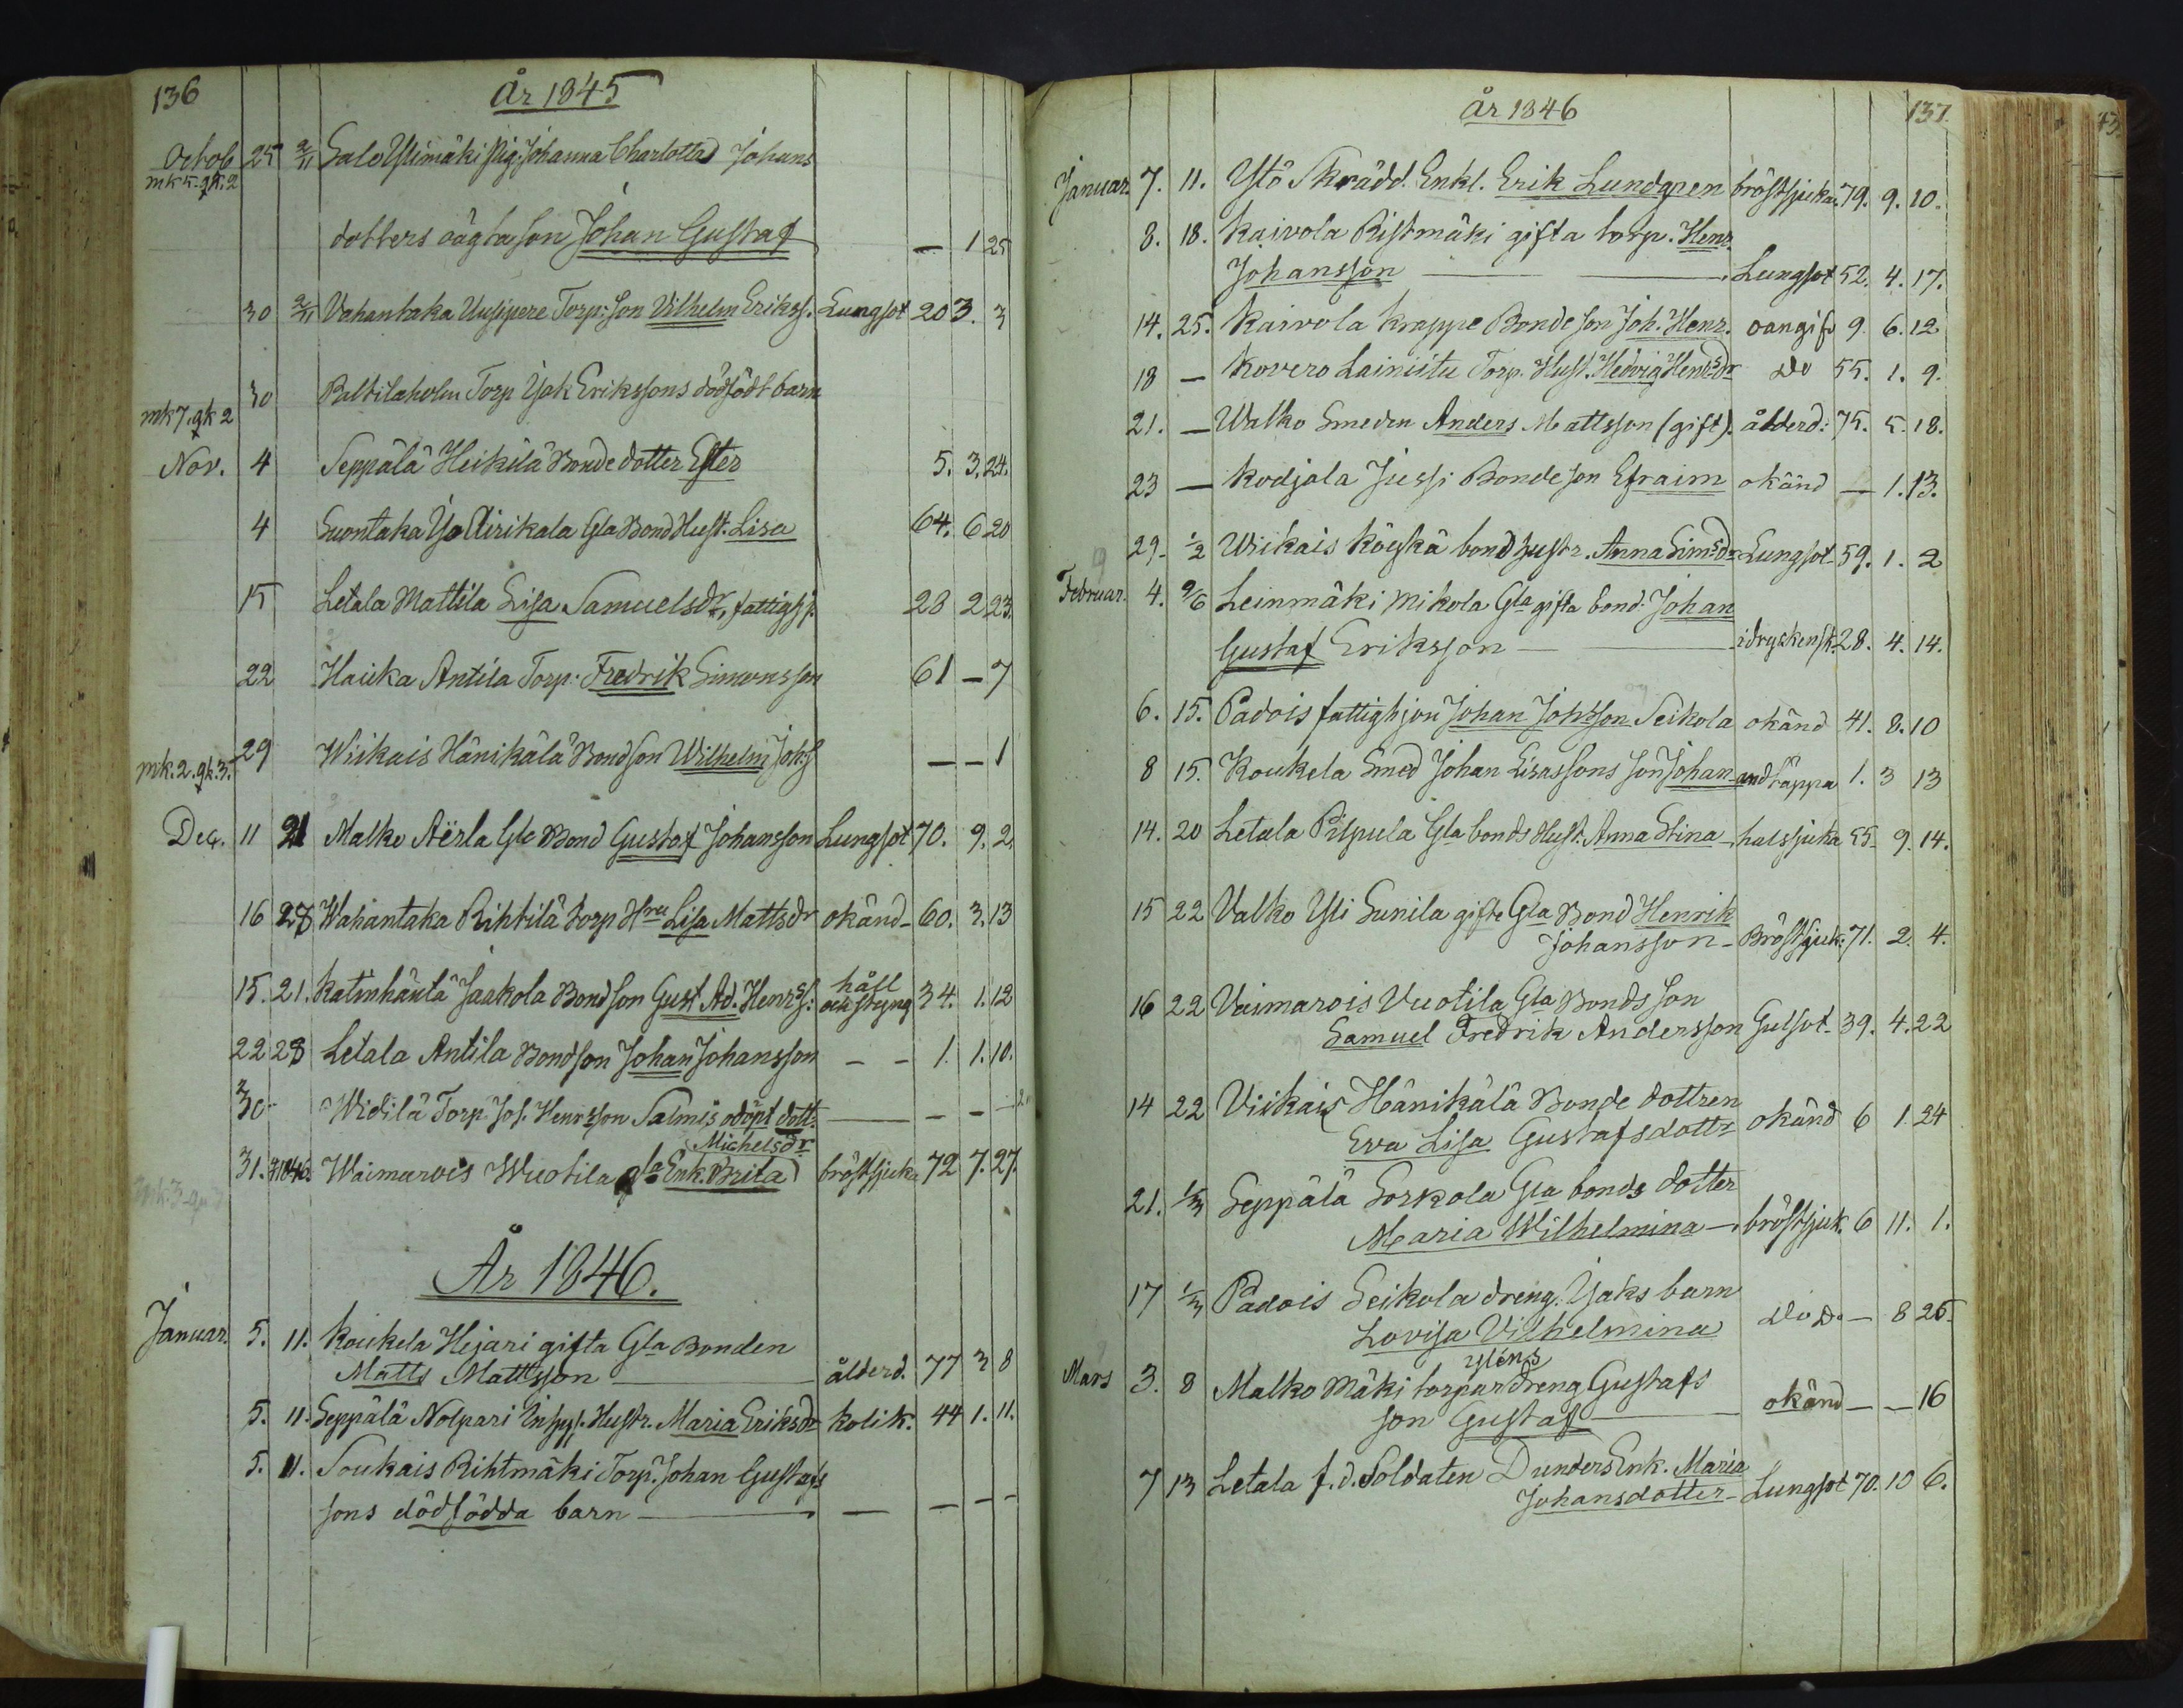 136
År 1845
Octob 25 2/11 Salo Ylimäki Pig. Johanna Charlotta Johans
mk 5. qk. 2
dotters oägta son Johan Gustaf — 1 25
30 2/11 Vahantaka Uusipere Torp: son Vilhelm Erikss. Lungsot 20 3. 3
30 Paltilaholm Torp Isak Erikssons dödfödt barn
mk 7. qk 2
Nov. 4 Seppälä Heikilä Bonde dotter Ester 5. 3. 24.
4 Suontaka Yso Airikala Gla Bond Hust. Lisa 64. 6 20
15 Letala Mattila Lisa Samuelsdr, fattighj. 28 2 23.
22 Hauka Antila Torp. Fredrik Simonsson 61 — 7
29 Wiikais Hänikälä Bondson Wilhelm Johs — — 1
mk. 2. qk. 3.
Dec. 11 21 Malko Aërla Gla Bond Gustaf Johansson Lungsot 70. 9. 2.
16 28 Wahantaka Rihtilä Torp Hru Lisa Mattsdr okänd 60. 3. 13
15. 21. Katinhäntä Jaakola Bondson Gust Ad. Henrss: håll och styng 34. 1. 12
22 28 Letala Antila Bondson Johan Johansson — — 1. 1. 10.
30 Widilä Torp. Jos. Henrsson Salmis odöpt dott. — — —
Michelsdr
31. 1846 Waimarois Wuotila gla Enk. Brita bröstsjuka 72 7. 27.
mk. 3
År 1846.
Januar. 5. 11. Koukela Hejari gifta Gla Bonden
Matts Mattsson ålderd. 77 3 8
5. 11. Seppälä Nolpari Inhys. Hustr. Maria Eriksdr kolik. 44 1. 11.
5. 11. Soukais Rihtmäki Torp. Johan Gustafs
sons dödfödda barn — — — —
137.
år 1846
Januar. 7. 11. Ytö Skrädd. Enkl. Erik Lundgren bröstsjuka. 79. 9. 10.
8. 18. Kaivola Ristmäki gifta torp. Henr.
Johansson Lungsot 52. 4. 17.
14. 25. Kaivola Krappe Bondeson Joh. Henr. oangif 9. 6. 12
18 — Kovero Lainistu Torp. Hust. Hedvig Henrsdr Do 55. 1. 9.
21. — Walko Smeden Anders Mattsson (gift). ålderd: 75. 5. 18.
23 — Kodjala Jussi Bondeson Efraim okänd — 1. 13.
29. 1/2 Wiikais Köyskä bondhustr. Anna Simsdr Lungsot 59. 1. 2
Februar. 4. 9/6 Leinmäki Mikola Gla gifta bond. Johan
Gustaf Eriksson idryskensk. 28. 4. 14.
6. 15. Padois fattighjon Johan Johsson Seikola okänd 41. 8. 10
8 15. Koukela Smed Johan Lisassons son Johan andtäppa 1. 3 13
14. 20 Letala Pilpula Gla bonds Hust. Anna Stina halssjuka 55. 9. 14.
15 22 Valko Yli Sunila gifte Gla Bond Henrik
Johansson Bröstsjuk. 71. 2. 4.
16 22 Vaimarois Vuotila Gla Bonds son
Samuel Fredrik Andersson Gulsot 39. 4. 22
14 22 Viikais Hänikälä Bonde dottren
Eva Lisa Gustafsdottr okänd 6 1. 24
21. 1/3 Seppälä Sorkola Gla bonds dotter
Maria Wilhelmina bröstsjuk. 6 11. 1.
17 1/3 Padois Seikola dreng. Isaks barn
Lovisa Vilhelmina Do Do — 8 25.
Mars 3. 8 Malko Mäki torpardreng Gustafs
son Gustaf okänd — — 16
7 13 Letala f. d. Soldaten Dunders Enk. Maria
Johansdotter Lungsot 70. 10 6.